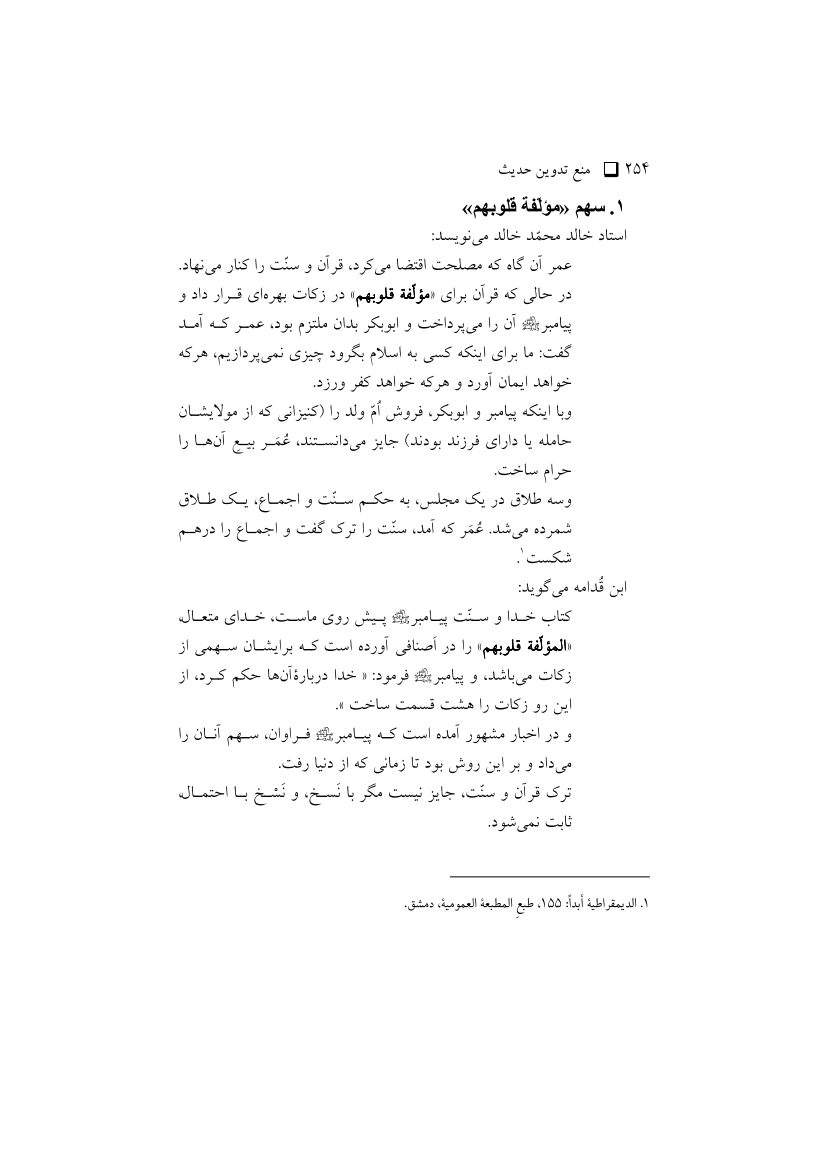 ۲۵۴ ❑ منع تدوین حدیث
۱. سهم «مؤلّفة قلوبهم»
استاد خالد محمّد خالد می‌نویسد:
عمر آن گاه که مصلحت اقتضا می‌کرد، قرآن و سنّت را کنار می‌نهاد.
در حالی که قرآن برای «مؤلّفة قلوبهم» در زکات بهره‌ای قـرار داد و
پیامبرﷺ آن را می‌پرداخت و ابوبکر بدان ملتزم بود، عمـر کـه آمـد
گفت: ما برای اینکه کسی به اسلام بگرود چیزی نمی‌پردازیم، هرکه
خواهد ایمان آورد و هرکه خواهد کفر ورزد.
وبا اینکه پیامبر و ابوبکر، فروش اُمّ ولد را (کنیزانی که از مولایشـان
حامله یا دارای فرزند بودند) جایز می‌دانسـتند، عُمَـر بیـعِ آن‌هـا را
حرام ساخت.
وسه طلاق در یک مجلس، به حکـم سـنّت و اجمـاع، یـک طـلاق
شمرده می‌شد. عُمَر که آمد، سنّت را ترک گفت و اجمـاع را درهـم
شکست۱.
ابن قُدامه می‌گوید:
کتاب خـدا و سـنّت پیـامبرﷺ پـیش روی ماسـت، خـدای متعـال،
«المؤلّفة قلوبهم» را در اَصنافی آورده است کـه برایشـان سـهمی از
زکات می‌باشد، و پیامبرﷺ فرمود: « خدا دربارهٔ آن‌ها حکم کـرد، از
این رو زکات را هشت قسمت ساخت ».
و در اخبار مشهور آمده است کـه پیـامبرﷺ فـراوان، سـهم آنـان را
می‌داد و بر این روش بود تا زمانی که از دنیا رفت.
ترک قرآن و سنّت، جایز نیست مگر با نَسـخ، و نَسْـخ بـا احتمـال،
ثابت نمی‌شود.
۱. الدیمقراطیهٔ أبداً: ۱۵۵، طبعِ المطبعهٔ العمومیهٔ، دمشق.